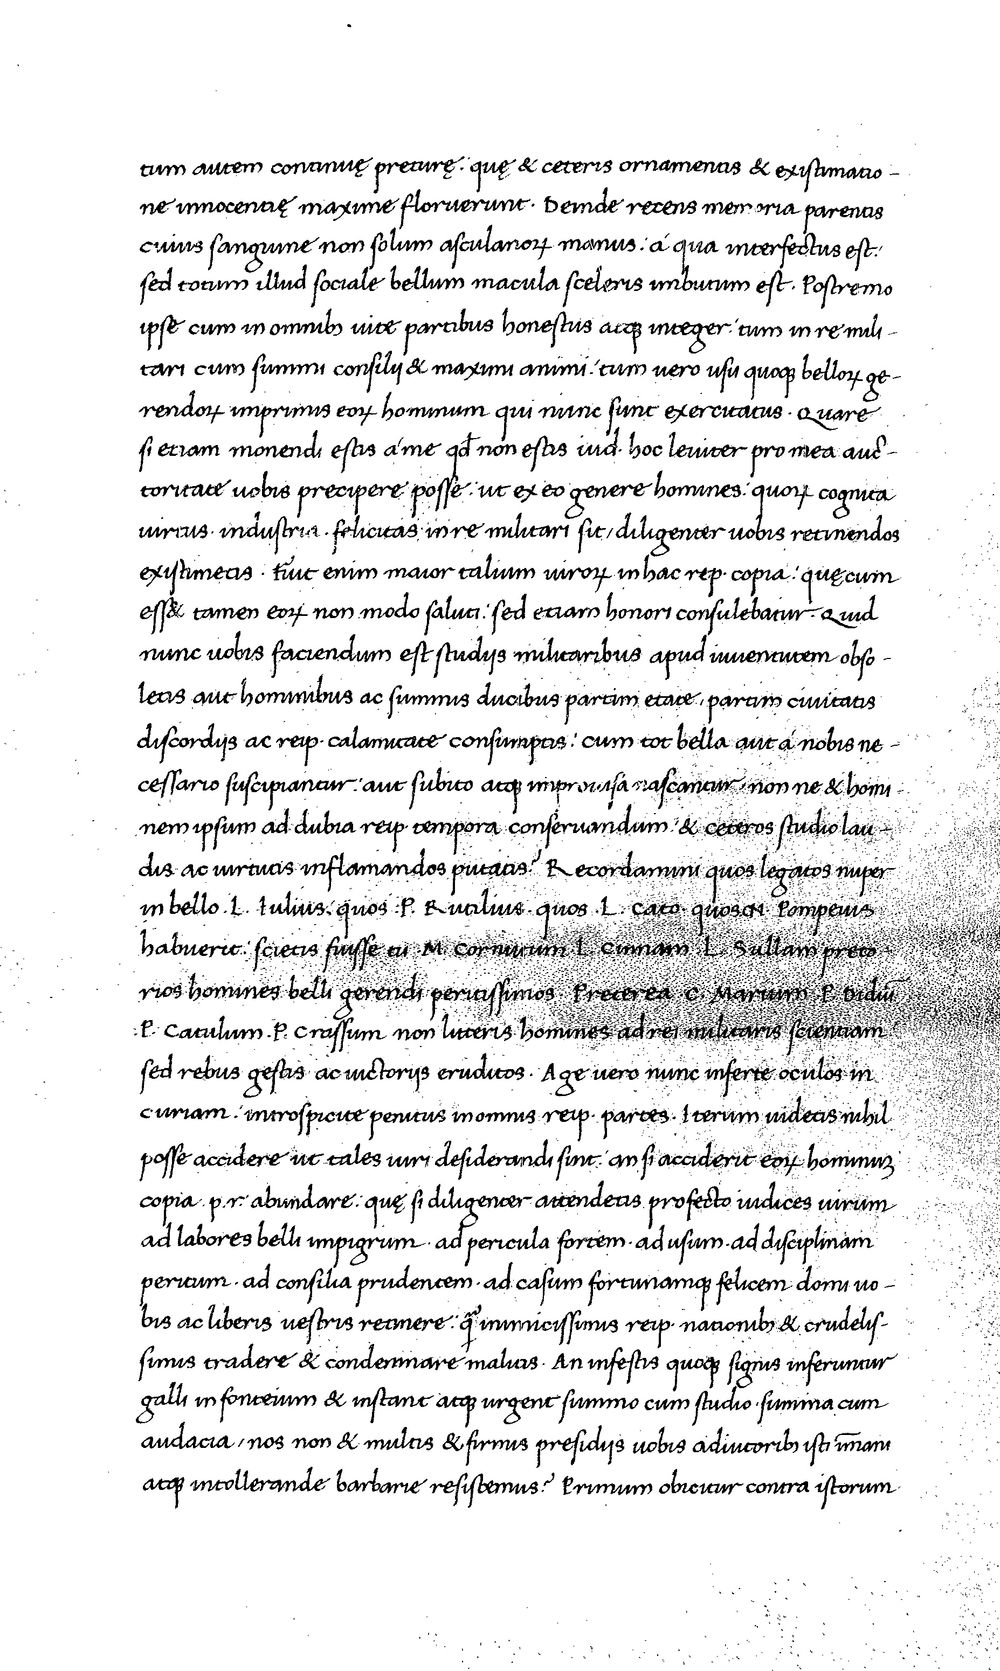 tum autem continuę preturę: quę & ceteris ornamentis & existimatio-
ne innocentię maxime floruerunt. Deinde recens memoria parentis
cuius sanguine non solum asculanoꝝ manus: á qua interfectus est:
sed totum illud sociale bellum macula sceleris imbutum est. Postremo
ipse cum in omnibꝫ uite partibus honestus atqꝫ integer: tum in re mili-
tari cum summi consilij & maximi animi: tum uero usu quoqꝫ belloꝝ ge-
rendoꝝ imprimis eoꝝ hominum qui nunc sunt exercitatus. Quare
si etiam monendi estis á me qđ non estis iud. hoc leuiter pro mea auc̄-
toritate uobis precipere posse: ut ex eo genere homines: quoꝝ cognita
uirtus. industria. felicitas in re militari sit/ diligenter uobis retinendos
existimetis. Fuit enim maior talium uiroꝝ in hac rep. copia: quę cum
ess& tamen eoꝝ non modo saluti: sed etiam honori consulebatur. Quid
nunc uobis faciendum est studijs militaribus apud iuuentutem obso-
letis aut hominibus ac summis ducibus partim etate, partim ciuitatis
discordijs ac reip. calamitate consumptis: cum tot bella aut á nobis ne-
cessario suscipiantur: aut subito atqꝫ improuisa nascantur, non ne & homi-
nem ipsum ad dubia reip. tempora conseruandum: & ceteros studio lau-
dis ac uirtutis inflamandos putatis? Recordamini quos legatos nuper
in bello. L. Iulius: quos. P. Rutilius. quos. L. Cato. quos cn̄ Pompeius
habuerit: scietis fuisse tū M. Cornutum L. Cinnam. L. Sullam preto
rios homines belli gerendi peritissimos. Preterea C. Marium P. Didiū
P. Catulum. P. Crassum non litteris homines ad rei militaris scientiam
sed rebus gestis ac uictorijs eruditos. Age uero nunc inferte oculos in
curiam: introspicite penitus in omnis reip. partes. Iterum uidetis nihil
posse accidere ut tales uiri desiderandi sint: an si acciderit eoꝝ hominuꝫ
copia p.r. abundare: quę si diligenter attendetis profecto iudices uirum
ad labores belli impigrum. ad pericula fortem. ad usum. ad disciplinam
peritum. ad consilia prudentem. ad casum fortunamqꝫ felicem domi uo-
bis ac liberis uestris retinere: q̄ inimicissimis reip. nationibꝫ & crudelis-
simis tradere & condemnare malitis. An infestis quoqꝫ signis inferuntur
galli in fonteium & instant atqꝫ urgent summo cum studio. summa cum
audacia, nos non & multis & firmis presidijs uobis adiutoribꝫ isti im̄ani
atqꝫ intollerande barbarie resistemus? Primum obicitur contra istorum